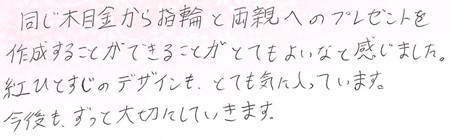 同じ木目金から指輪と両親へのプレゼントを
作成することができることがとてもよいなと感じました。
紅ひとすじのデザインも、とても気に入っています。
今後も、ずっと大切にしていきます。